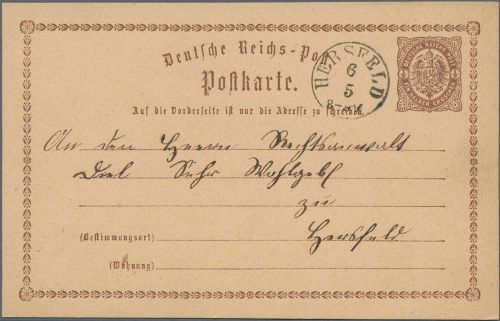 Deutsche Reichs-Post
Postkarte.
HERSFELD
6
5
8-9V
Auf die Vorderseite ist nur die Adresse zu schreiben.
An den Herrn Rechtsanwalt
Diel Sehr Wohlgeb
zu
(Bestimmungsort) Hersfeld
(Wohnung)